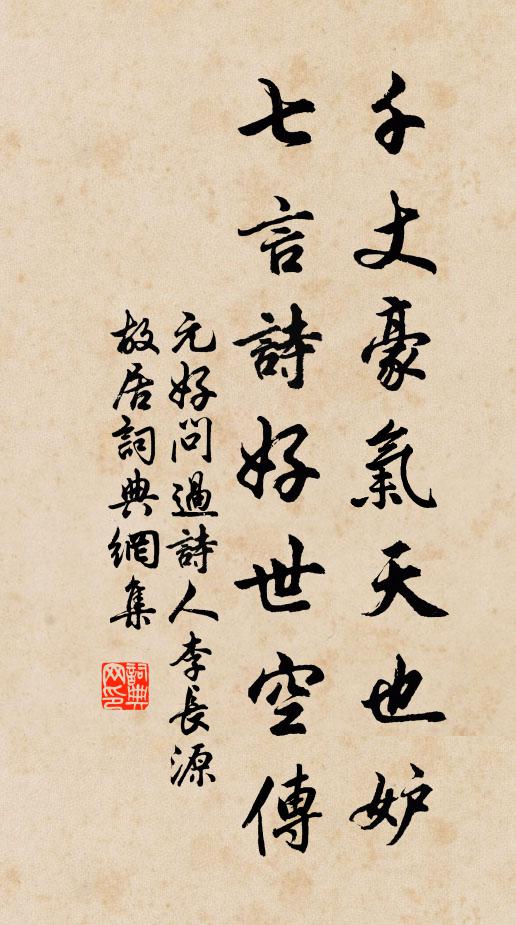 千丈豪氣天也妒
七言詩好世空傳
元好問過詩人李長源
故居詞典網集
詞典
网印